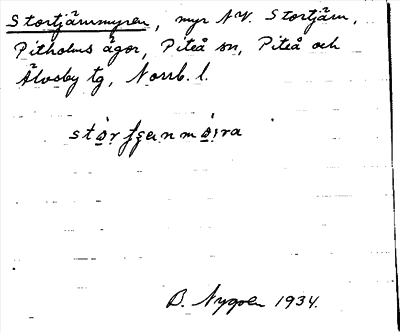 Stortjärnmyren, myr N.V. Stortjärn,
Pitholms ägor, Piteå sn, Piteå och
Älvsby tg, Norrb. l.
B. Nygren 1934.